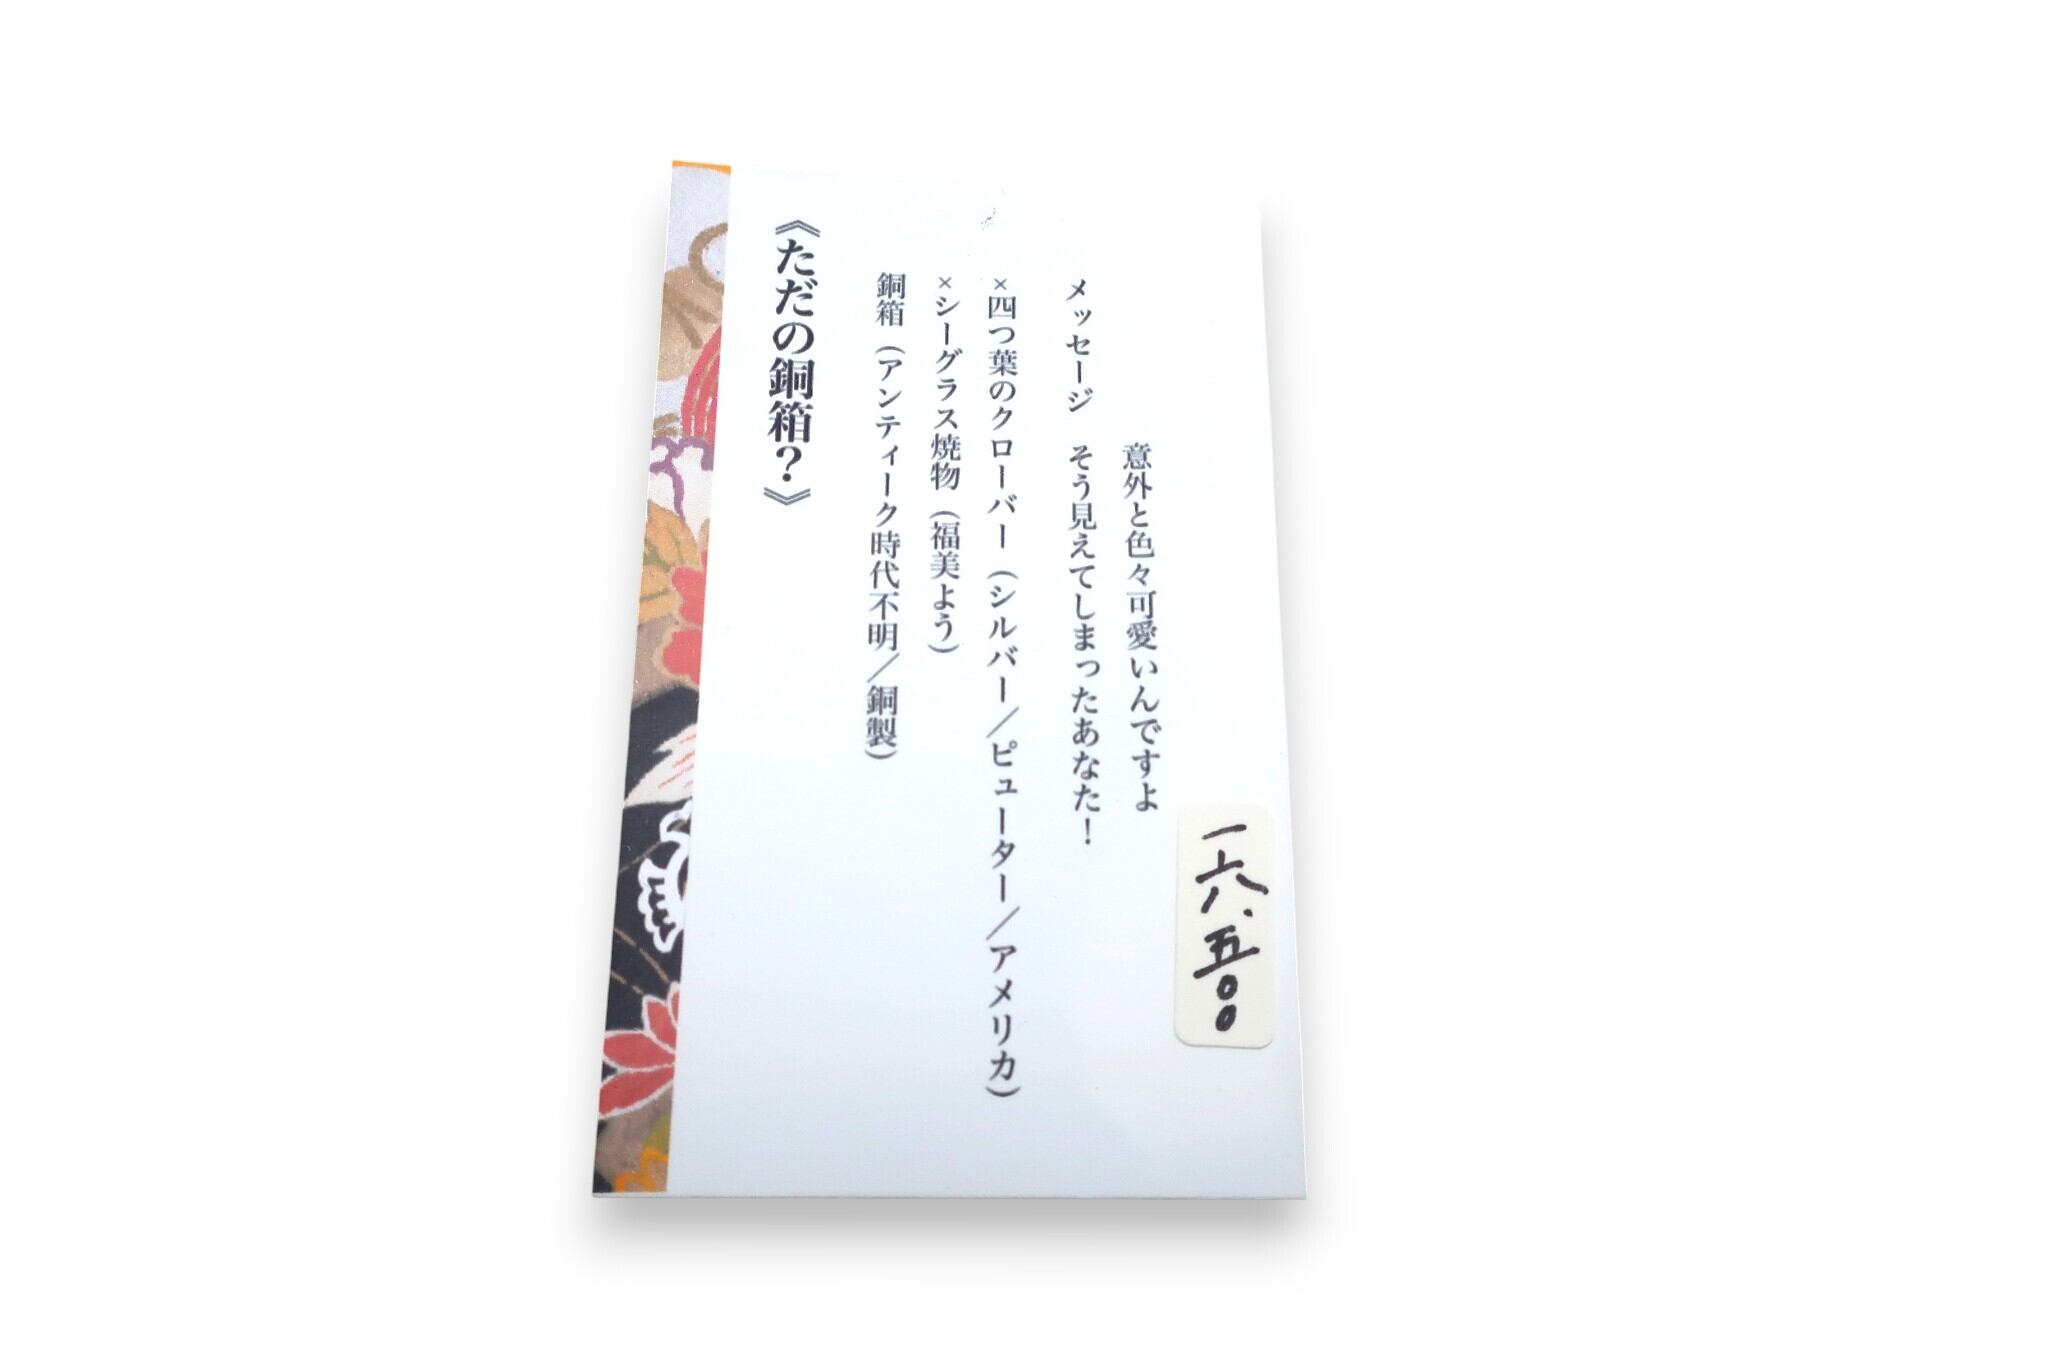 《ただの銅箱?》
銅箱(アンティーク時代不明/銅製)
×シーグラス焼物(福美よう)
×四つ葉のクローバー(シルバー/ピューター/アメリカ)
メッセージ　そう見えてしまったあなた!
意外と色々可愛いんですよ
一六、五〇〇